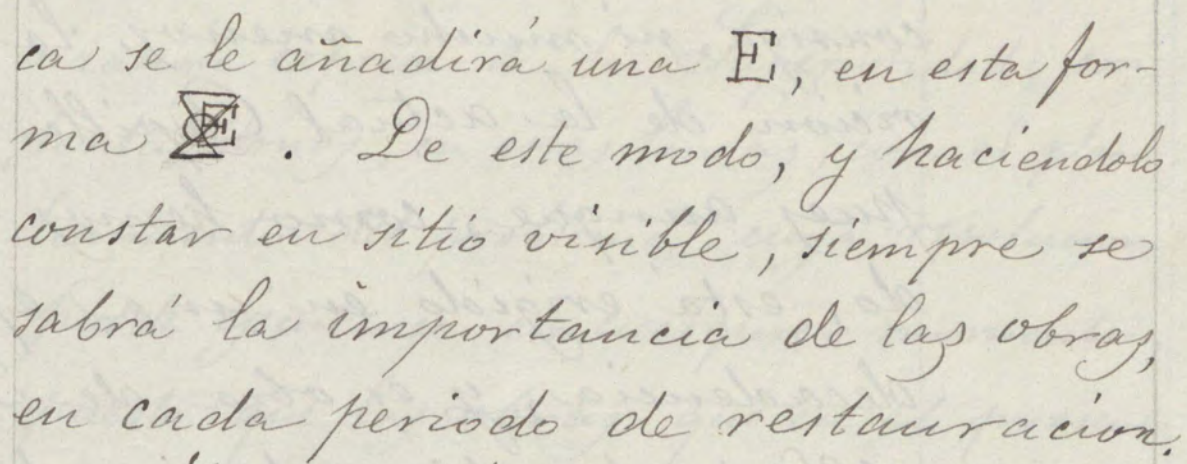 ca se le añadirá una E, en esta for-
ma . De este modo, y haciendolo
constar en sitio visible, siempre se
sabrá la importancia de las obras,
en cada periodo de restauracion.